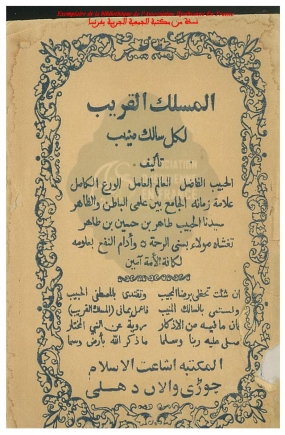 نسخة من مكتبة الجمعية الحربية بفرنسا
المسلك القريب
لكل سالك منيب
تأليف
الحبيب الفاضل العالم العامل الورع الكامل
علامة زمانه الجامع بين علمي الباطن والظاهر
سيدنا الحبيب طاهر بن حسين بن طاهر
تغشاه مولاه بسنى الرحمة وأدام النفع بعلومه
لكافة الأمة آمين
ان شئت تحظى برضا المجيب وتقتدي بالمصطفى الحبيب
بالسالك المنيب فاعمل بما في (المسلك القريب)
بأن ما فيه من الاذكار روية عن النبي المختار
صلى عليه ربنا وسلما ما ذكر الله بأرض وسما
المكتبة اشاعت الاسلام
چوڑی والان دهلی